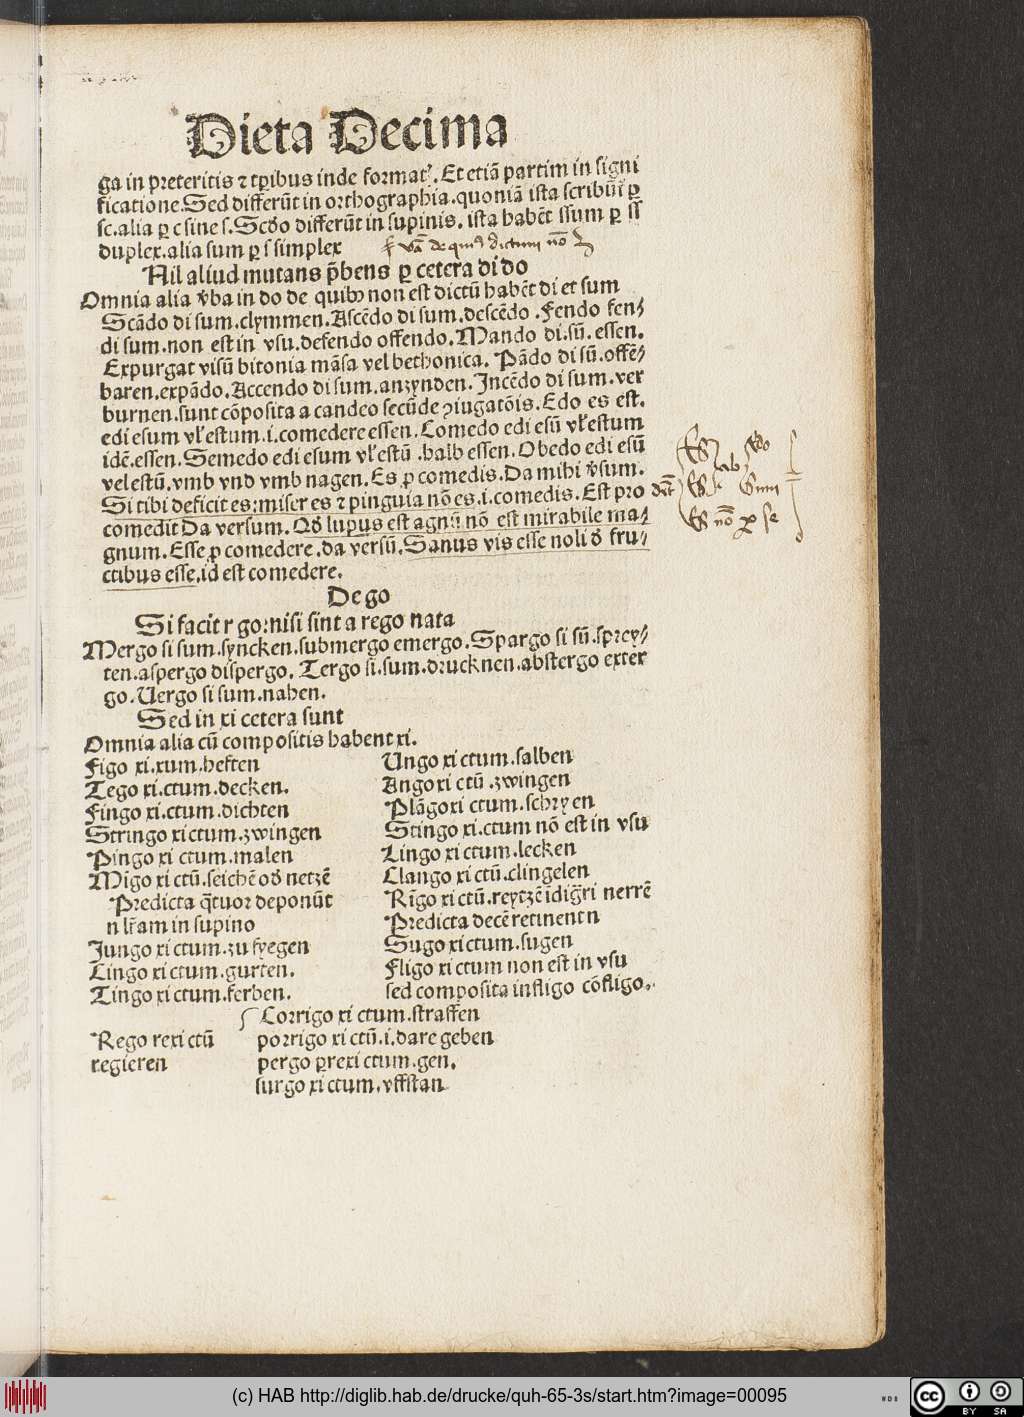 Dieta Decima
ga in preteritis ⁊ tꝑibus inde format᷑. Et etiã partim in signi
ficatione. Sed differũt in orthographia. quoniã ista scribũt᷑ ꝑ
sc. alia ꝑ c sine s. Scḋo differũt in supinis. ista habẽt ssum ꝑ ss
duplex. alia sum ꝑ s simplex
Nil aliud mutans p̃bens ꝑ cetera di do
Omnia alia v̾ba in do de quibꝫ non est dictũ habẽt di et sum
Scãdo di sum. clymmen. Ascẽdo di sum. descẽdo. Fendo fen⸗
di sum. non est in vsu. defendo offendo. Mando di. sũ. essen.
Expurgat visũ bitonia mãsa vel bethonica. Pãdo di sũ. offẽ⸗
baren. expãdo. Accendo di sum. anzynden. Incẽdo di sum. ver
burnen. sunt cõposita a candeo secũde ꝯiugatõis. Edo es est.
edi esum vl̾ estum. i. comedere essen. Comedo edi esũ vl̾ estum
idẽ. essen. Semedo edi esum vl̾ estũ. halb essen. Obedo edi esũ
vel estũ. vmb vnd vmb nagen. Es ꝓ comedis. Da mihi v̾sum.
Si tibi deficit es: miser es ⁊ pinguia nõ es. i. comedis. Est pro
comedit Da versum. Qḋ lupus est agnũ nõ est mirabile ma⸗
gnum. Esse ꝓ comedere. da versũ. Sanus vis esse noli ḋ fru⸗
ctibus esse. id est comedere.
De go
Si facit r go: nisi sint a rego nata
Mergo si sum. syncken. submergo emergo. Spargo si sũ. sprey⸗
ten. aspergo dispergo. Tergo si. sum. drucknen. abstergo exter
go. Vergo si sum. nahen.
Sed in xi cetera sunt
Omnia alia cũ compositis habent xi.
Figo xi. xum. heften
Tego xi. ctum. decken.
Fingo xi. ctum. dichten
Stringo xi ctum. zwingen
Pingo xi ctum. malen
Migo xi ctũ. seichẽ oḋ netzẽ
Predicta q̃tuor deponũt
n lr̃am in supino
Jungo xi ctum. zu fyegen
Cingo xi ctum. gurten.
Tingo xi ctum. ferben.
Ungo xi ctum. salben
Ango xi ctũ. zwingen
Plãgo xi ctum. schryen
Stingo xi. ctum nõ est in vsu
Lingo xi ctum. lecken
Clango xi ctũ. clingelen
Rĩgo xi ctũ. reytzẽ idig̃ri nerrẽ
Predicta decẽ retinent n
Sugo xi ctum. sugen
Fligo xi ctum non est in vsu
sed composita infligo cõfligo.
Rego rexi ctũ
regieren
Corrigo xi ctum. straffen
porrigo xi ctũ. i. dare geben
pergo ꝑrexi ctum. gen.
surgo xi ctum. vffstan
(c) HAB http://diglib.hab.de/drucke/quh-65-3s/start.htm?image=00095
WDB
cc
BY SA